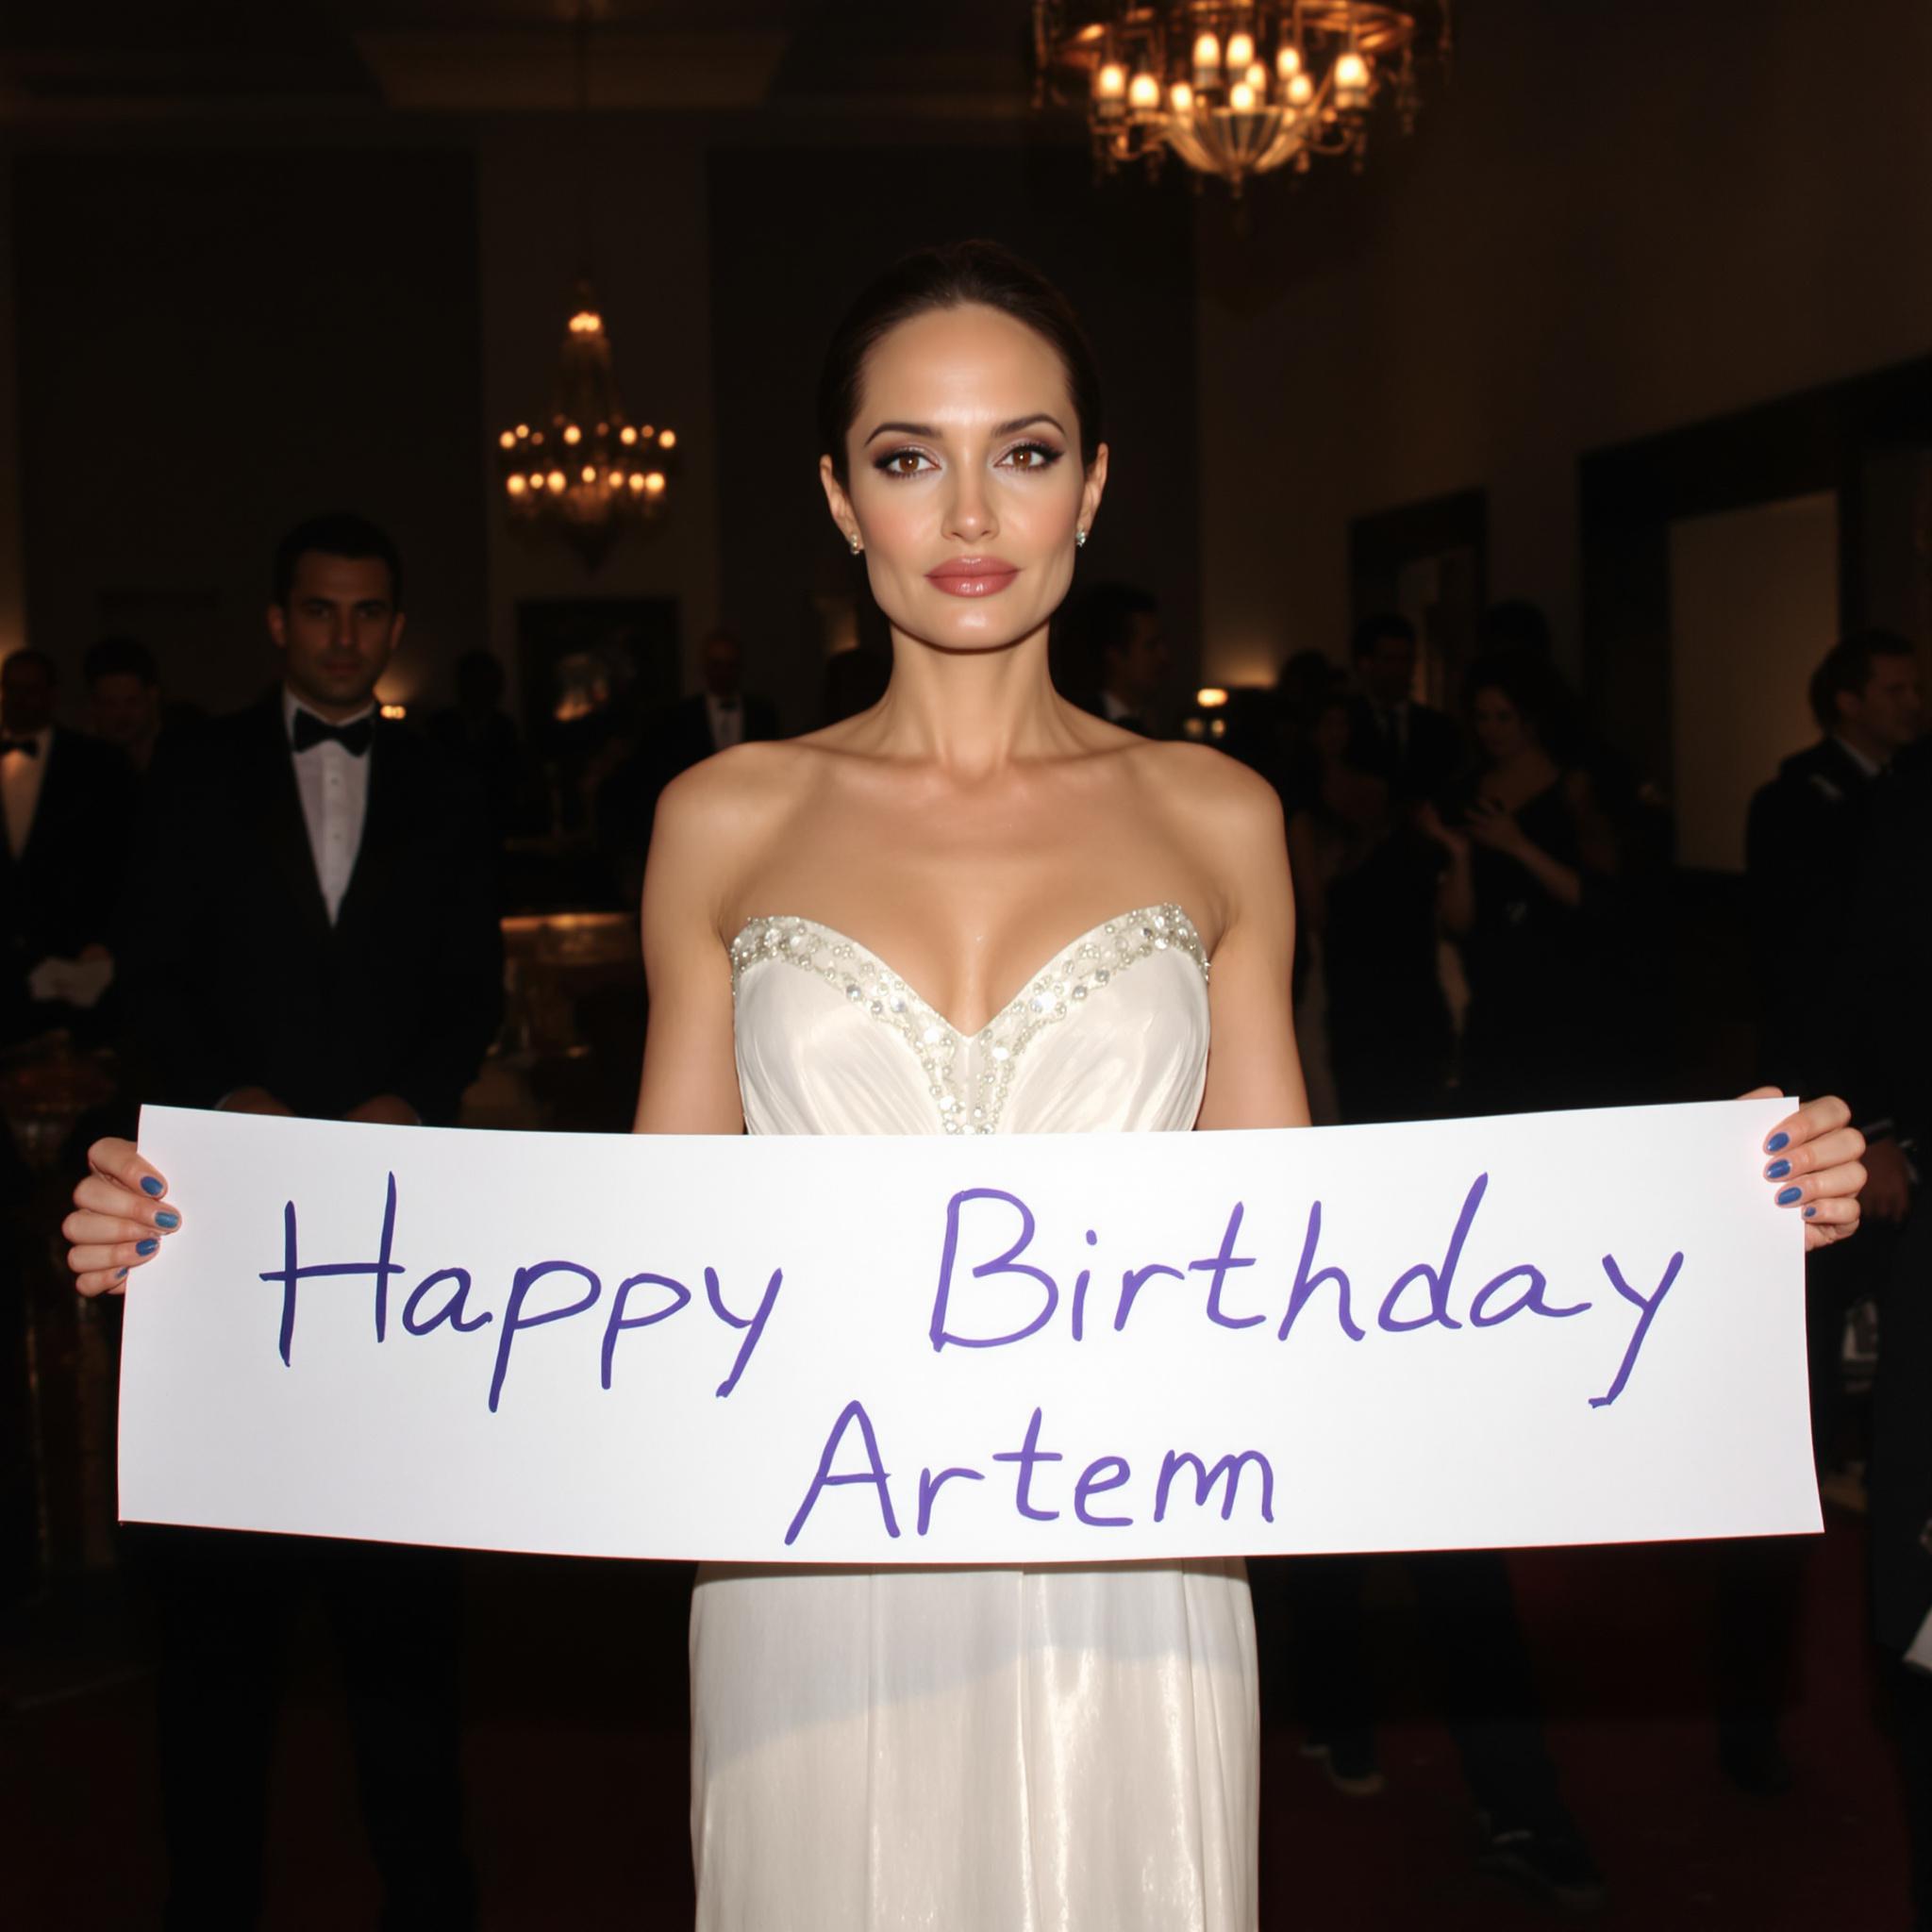 Happy Birthday
Artem